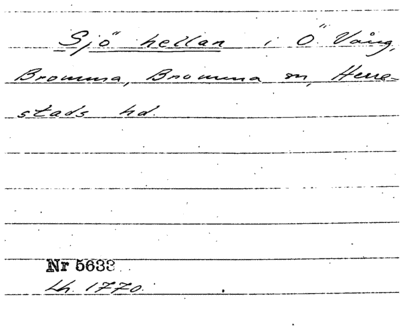 Sjö hellan i Ö. Vång,
Bromma, Bromma sn, Herre-
stads hd.
Nr 5633
Lh. 1770.